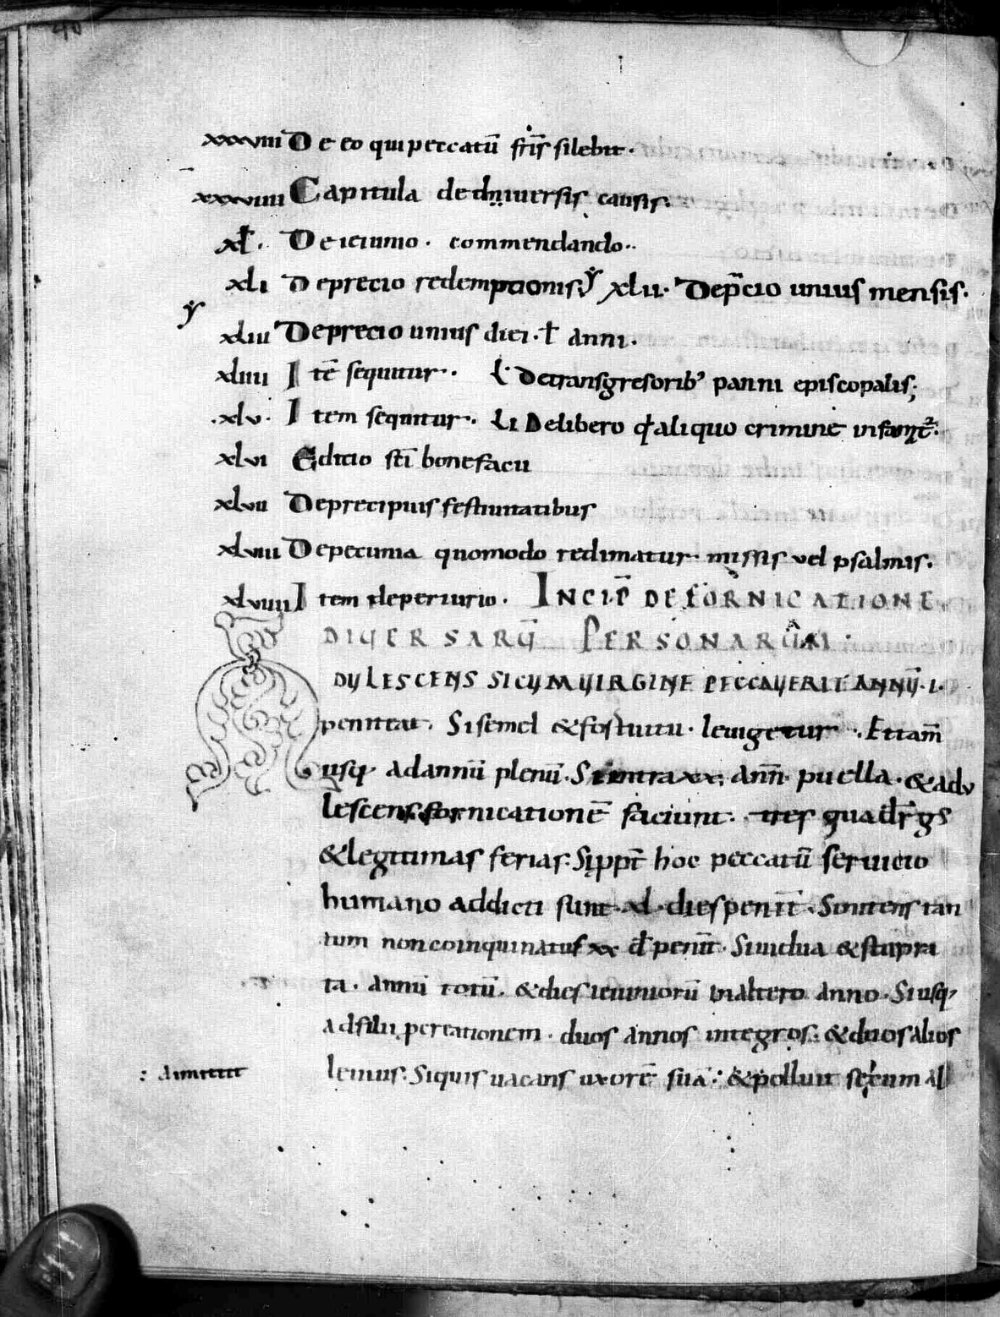 40
xxxviii De eo qui peccatū fr̄is silebit.
xxxviiii Capitula de diuersis causis.
xl. De ieiunio. commendando..
xli De precio redemptionis xlii. Dep̄cio unius mensis.
xliii De precio unius diei. ł anni.
xliiii Itē sequitur. L. De transgresorib' panni episcopalis;
.xlv. Item sequitur. Li De libero
xlvi Edicio sc̄i bonefacii
xlvii De precipuis festiuitatibus
xlviii De pecunia quomodo redimatur. missis vel psalmis.
xlviiii Item de periurio. INCIP̄ DE FORNICATIONE
DIUERSARŪ PERSONARUM.
DULESCENS SI CUM UIRGINE PECCAUERIT ANNŪ.I.
peniteat. Si semel & fortuitu. leuigetur. Et tam̄
usq; ad annū plenū. Si intra xx. ann̄. puella. & adu
lescens. fornicationē faciunt. tres
& legitimas ferias. Si ppt̄ hoc peccatū seruicio
humano addicti sunt. xl. dies penit̄. Si nitens tan
tum non coinquinatus xx d̄ penit̄. Si uidua & stupra
ta. annū totū. & dies ieiuniorū in altero anno. Si usq;
ad filii percationem. duos annos integros. & duos alios
: dimittit leuius. Si quis uacans uxorē suā: & polluit